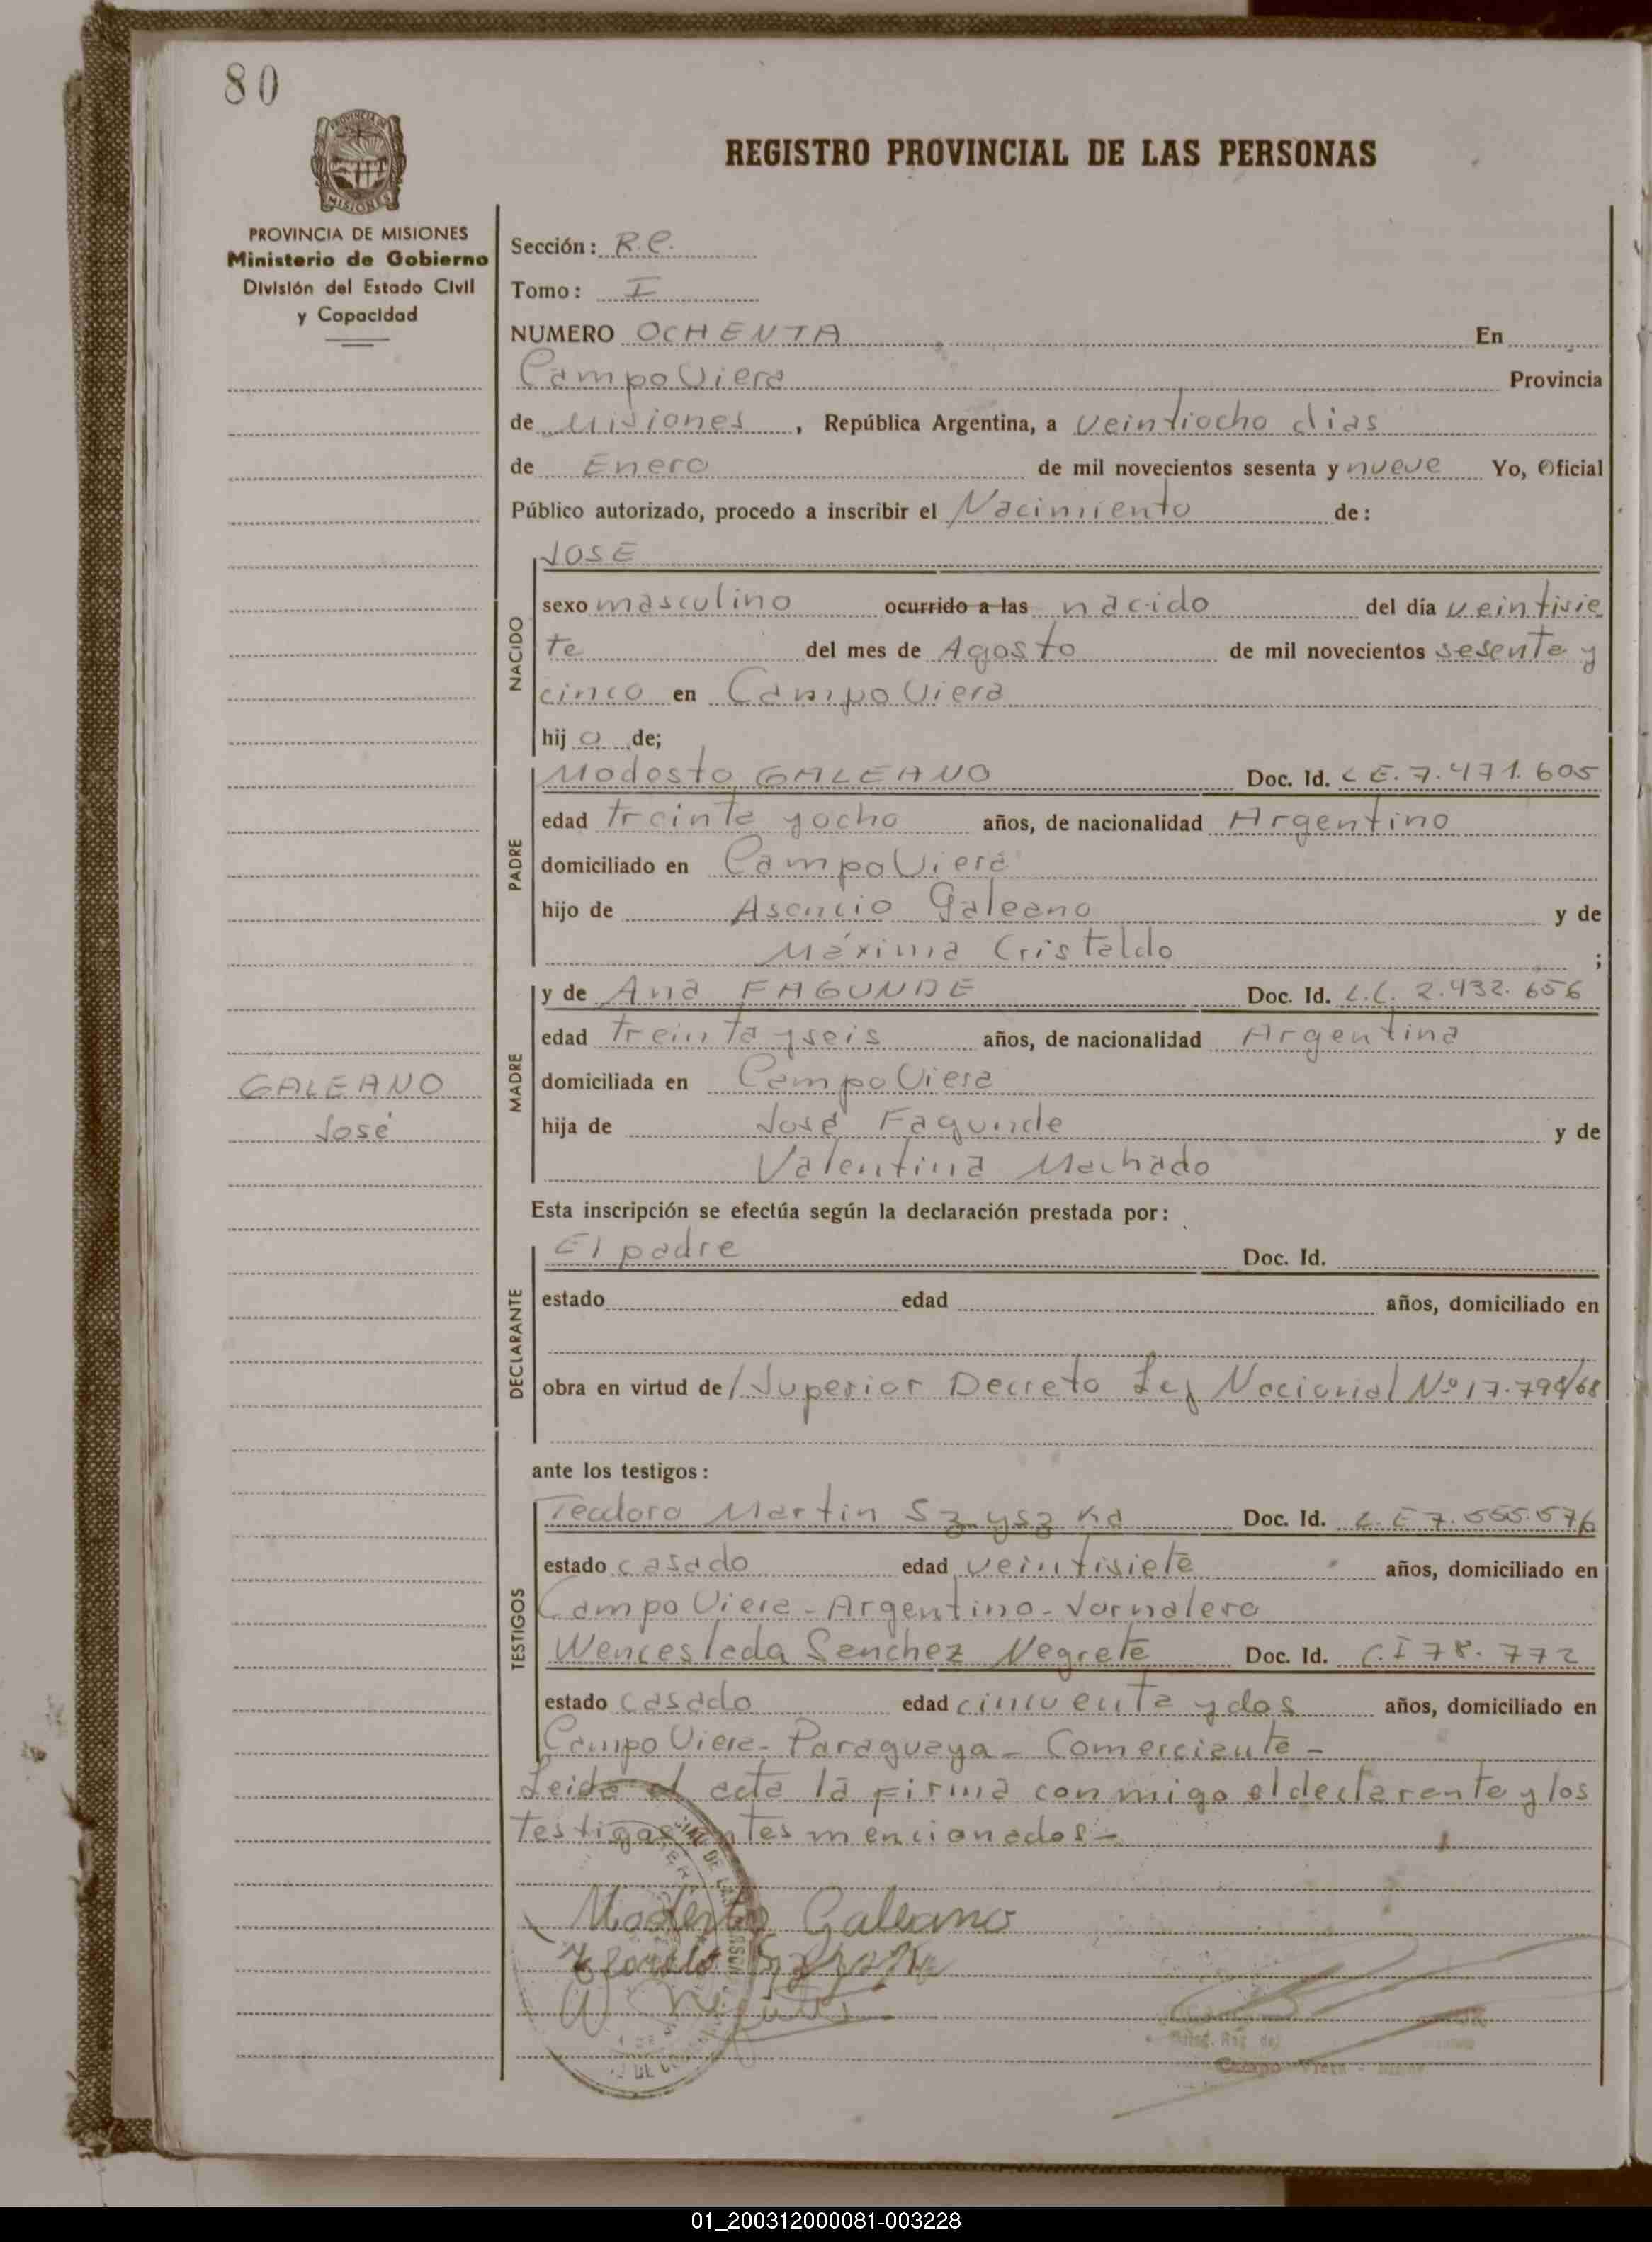 80
PROVINCIA DE
MISIONES
REGISTRO PROVINCIAL DE LAS PERSONAS
PROVINCIA DE MISIONES
Ministerio de Gobierno
División del Estado Civil
y Capacidad
Sección: R.C.
Tomo: I
NUMERO OCHENTA En
Campo Viera Provincia
de Misiones, República Argentina, a veintiocho dias
de Enero de mil novecientos sesenta y nueve Yo, Oficial
Público autorizado, procedo a inscribir el Nacimiento de:
NACIDO
JOSE
sexo masculino ocurrido a las nacido del día veintisie
te del mes de Agosto de mil novecientos sesenta y
cinco en Campo Viera
hijo de;
PADRE
Modesto GALEANO Doc. Id. L E. 7.471.605
edad treinta y ocho años, de nacionalidad Argentino
domiciliado en Campo Viera
hijo de Asencio Galeano y de
Máxima Cristaldo ;
MADRE
y de Ana FAGUNDE Doc. Id. L.C. 2.932.656
edad treinta y seis años, de nacionalidad Argentina
domiciliada en Campo Viera
hija de José Fagunde y de
Valentina Machado
GALEANO
José
Esta inscripción se efectúa según la declaración prestada por:
DECLARANTE
El padre Doc. Id.
estado edad años, domiciliado en
obra en virtud de / Superior Decreto Ley Nacional Nº 17.794/68
ante los testigos:
TESTIGOS
Teodoro Martin Szyszka Doc. Id. L. E 7.555.576
estado casado edad veintisiete años, domiciliado en
Campo Viera - Argentino - Jornalero
Wenceslada Sanchez Negrete Doc. Id. C.I 78.772
estado casado edad cincuenta y dos años, domiciliado en
Campo Viera - Paraguaya - Comerciante -
Leida el acta la firma conmigo el declarante y los
testigos antes mencionados -
Modesto Galeano
Campo Viera
01_200312000081-003228